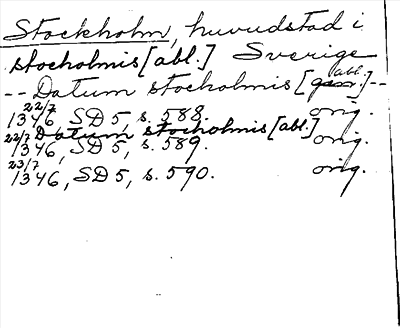 Stockholm, huvudstad i
stocholmis [abl.] Sverige
-- Datum stocholmis [abl.] --
22/7
1346, SD 5, s. 588. orig.
22/7 Datum stocholmis [abl.]
1346, SD 5, s. 589. orig.
23/7
1346, SD 5, s. 590. orig.